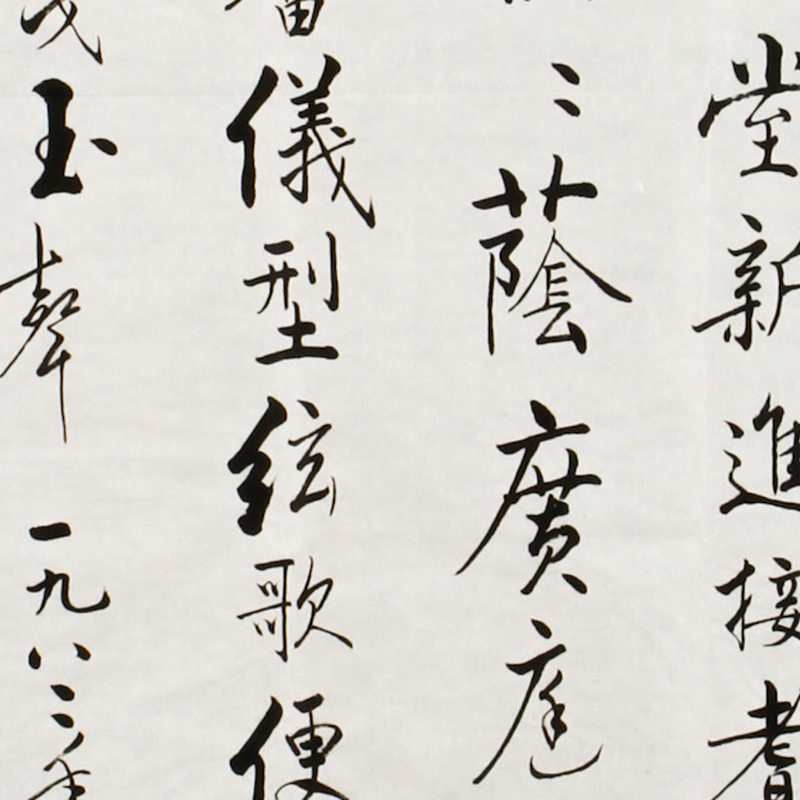 堂新進接耆
蔭廣庭
儀型絃歌便
玉聲 一九八二年